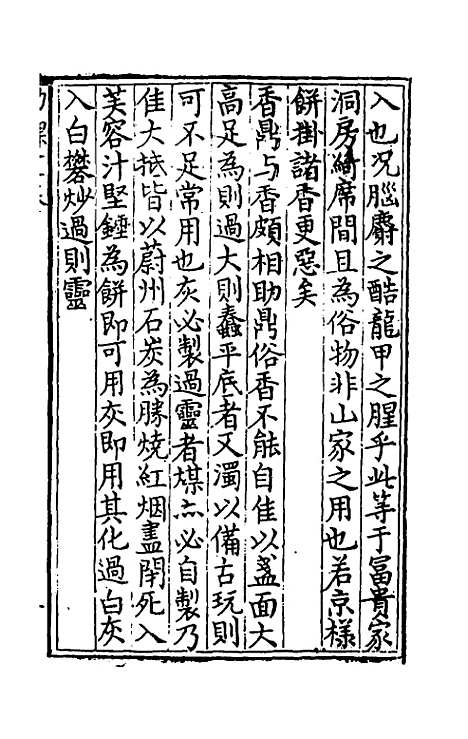 入也况腦麝之酷龍甲之腥乎此等于冨貴家
洞房綺席間且為俗物非山家之用也若京様
餅掛諸香更惡矣
香鼎与香頗相助鼎俗香不能自佳以盞面大
高足為則過大則蠢平底者又濁以備古玩則
可不足常用也灰必製過靈者煤亦必自製乃
佳大抵皆以蔚州石炭為勝燒紅烟盡閉死入
芙容汁堅錘為餅即可用灰即用其化過白灰
入白礬炒過則靈